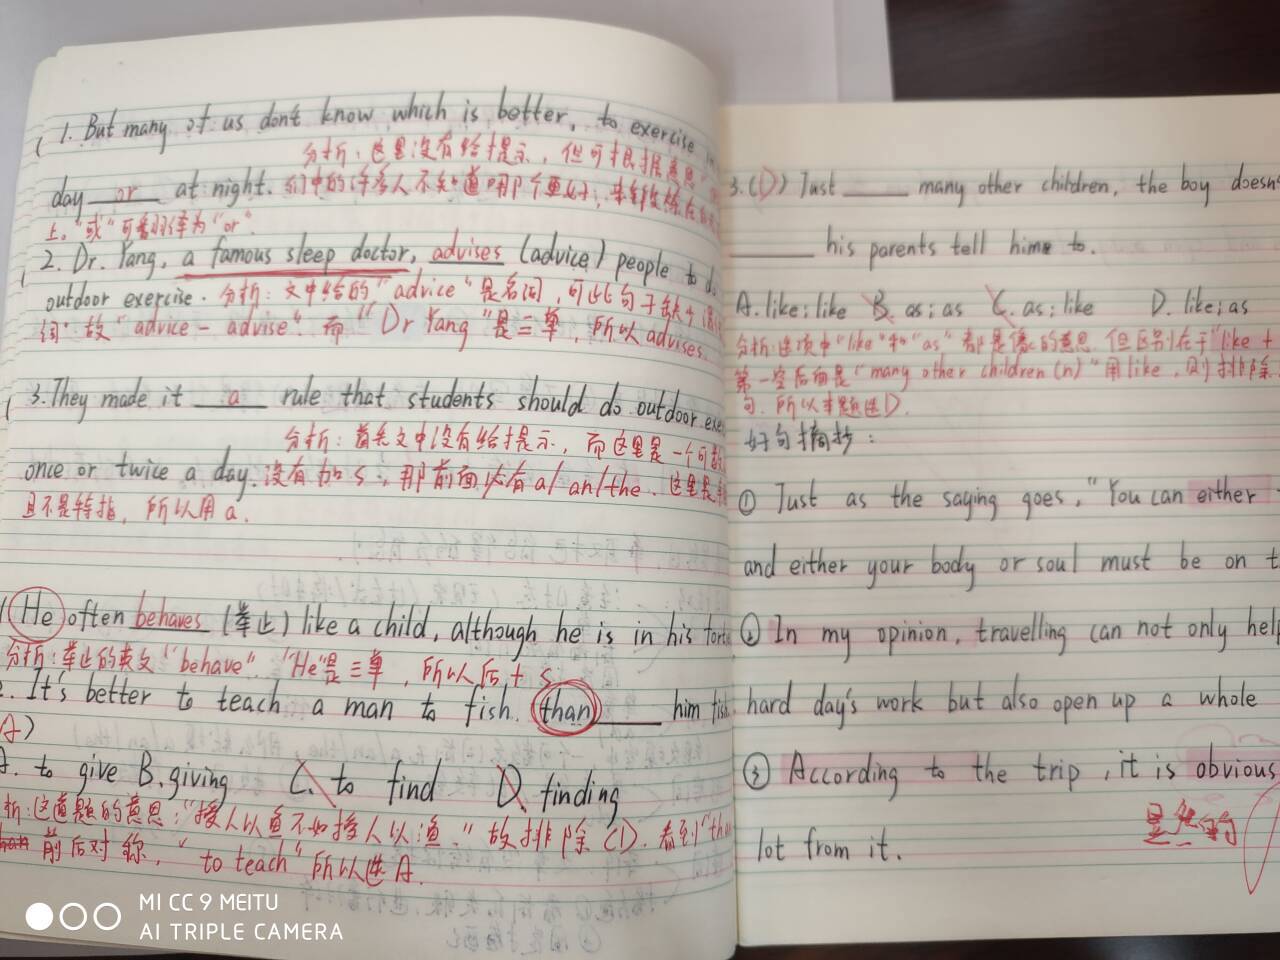 1. But many of us don't know which is better, to exercise
分析：这里没有给提示，但可根据意思"
day or at night. 们中的许多人不知道哪个更好；来锻炼在
上。"或"可翻译为"or".
2. Dr. Yang, a famous sleep doctor, advises (advice) people to do
outdoor exercise. 分析：文中给的"advice"是名词，可此句子缺少谓
词：故"advice-advise". 而"Dr Yang"是三单，所以advises.
3. They made it a rule that students should do outdoor exe
分析：首先文中没有给提示，而这里是一个可数
once or twice a day. 没有加s，那前面必有a/an/the. 这里是
且不是特指，所以用a.
He often behaves (举止) like a child, although he is in his forti
分析：举止的英文"behave". "He"是三单，所以后+s
2. It's better to teach a man to fish than ____ him fish
(A)
A. to give B. giving C. to find D. finding
析：这道题的意思："授人以鱼不如授人以渔." 故排除CD. 看到"tha
than 前后对称，"to teach"所以选A.
3. (D) Just ____ many other children, the boy doesn
____ his parents tell him to.
A. like; like B. as; as C. as; like D. like; as
分析：选项中"like"和"as"都是像的意思 但区别在于"like +
第一空后面是"many other children (n)"用like, 则排除
句. 所以本题选D.
好句摘抄：
① Just as the saying goes, "You can either
and either your body or soul must be on t
② In my opinion, travelling can not only hel
hard day's work but also open up a whole
③ According to the trip, it is obvious
是然的
lot from it.
MI CC 9 MEITU
AI TRIPLE CAMERA